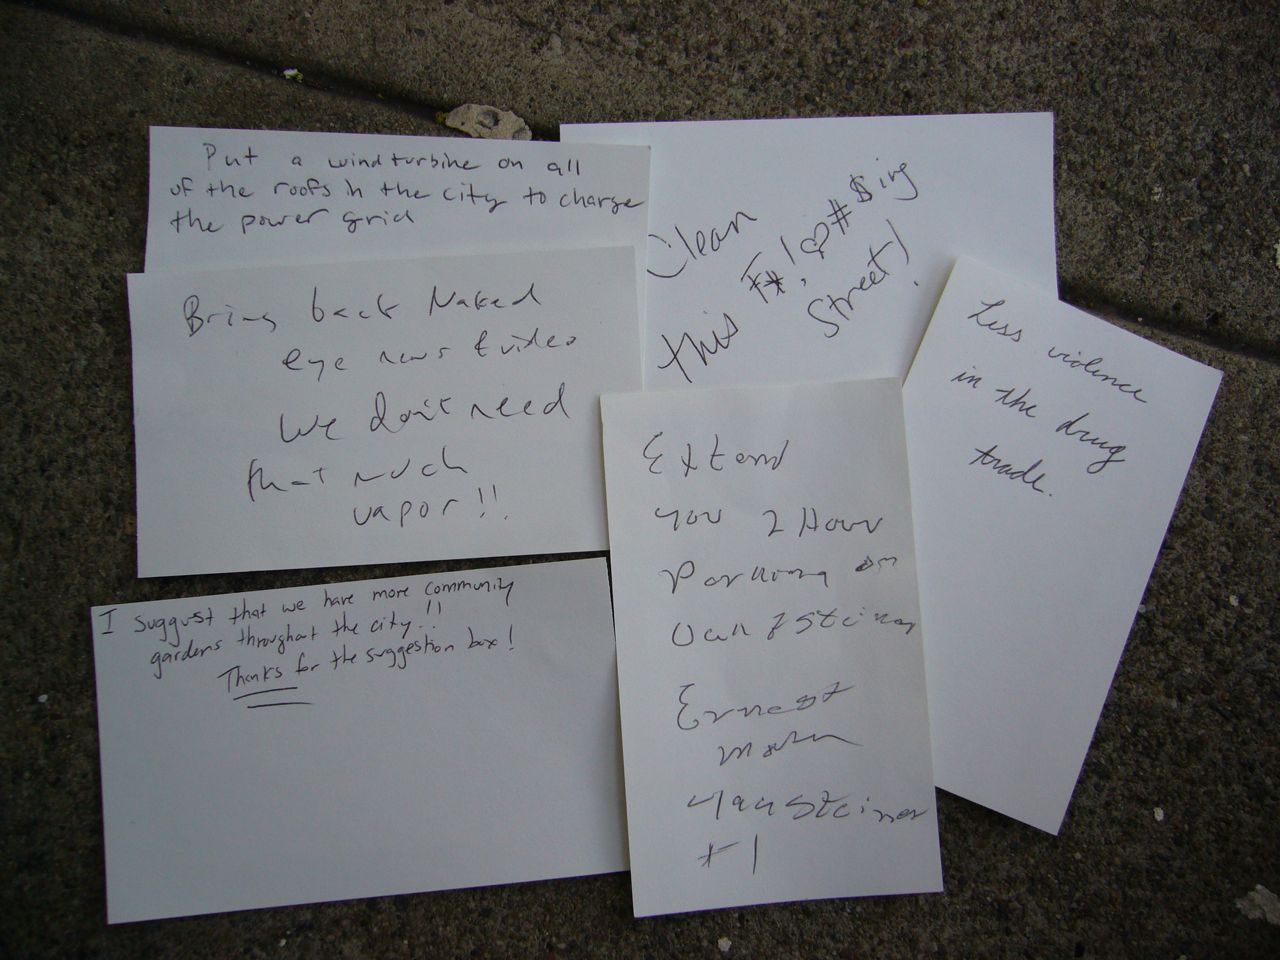 Put a wind turbine on all
of the roofs in the city to charge
the power grid
Clean
this F#!@#$ing
Street!
Bring back Naked
eye news & video
We don't need
that much
vapor!!
Less violence
in the drug
trade.
Extend
you 2 Hour
Parking on
Ernest
#1
I suggust that we have more community
gardens throughout the city!!
Thanks for the suggestion box!